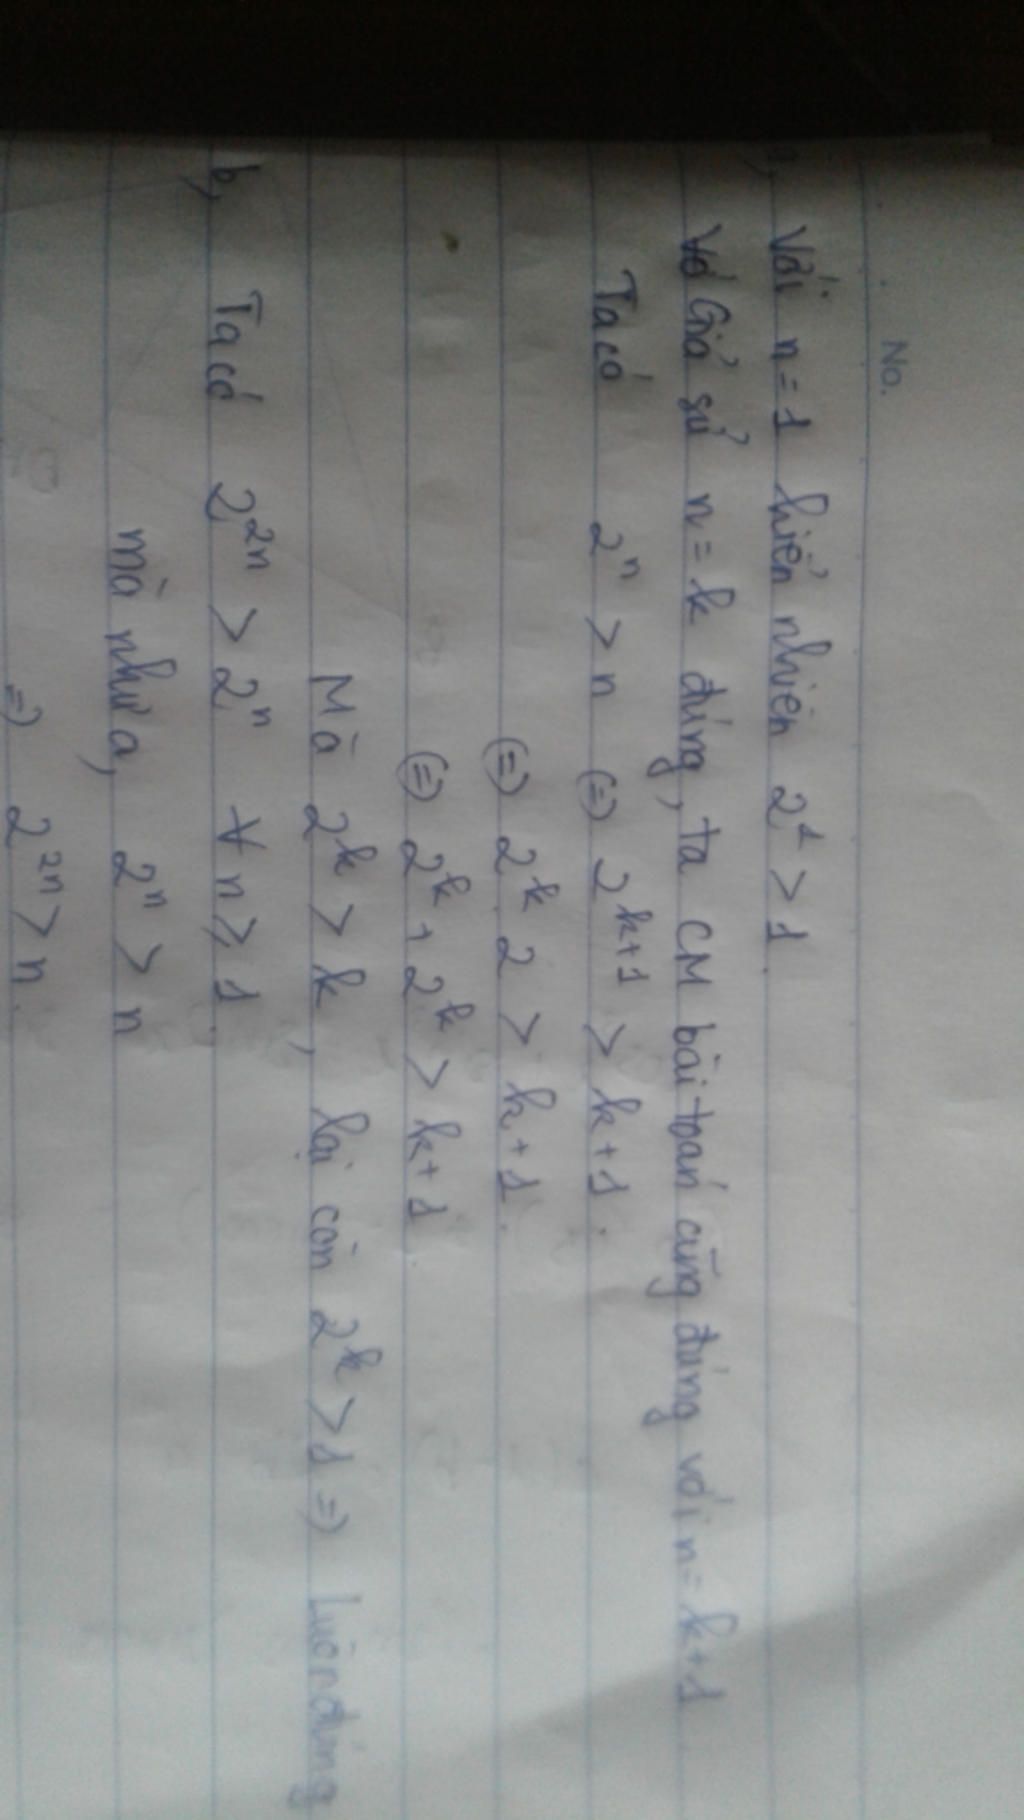 No.
a, Với n=1 hiển nhiên 2^1 > 1.
Giả sử n = k đúng, ta CM bài toán cũng đúng với n = k+1
Ta có 2^n > n (=) 2^{k+1} > k+1.
(=) 2^k . 2 > k+1.
(=) 2^k + 2^k > k+1.
Mà 2^k > k, lại còn 2^k > 1 =) Luôn đúng
b, Ta có 2^{2n} > 2^n ∀ n ≥ 1.
mà như a, 2^n > n
=) 2^{2n} > n.